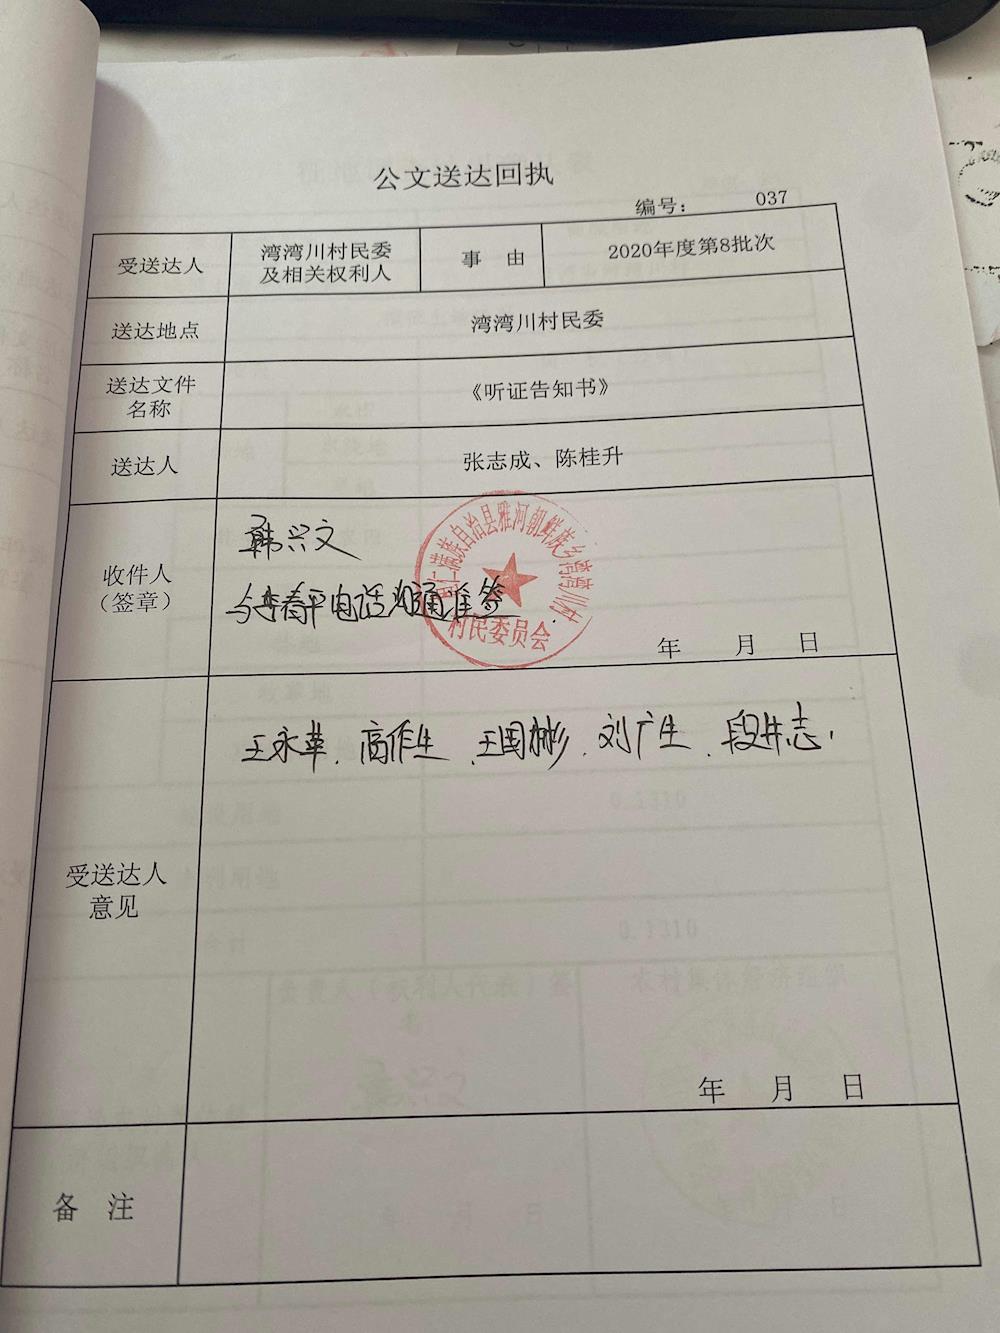 公文送达回执
编号： 037
受送达人
湾湾川村民委
及相关权利人
事 由
2020年度第8批次
送达地点
湾湾川村民委
送达文件
名称
《听证告知书》
送达人
张志成、陈桂升
收件人
（签章）
韩兴文
与李春平电话沟通准签
桓仁满族自治县雅河朝鲜族乡湾湾川村
村民委员会
年 月 日
受送达人
意见
王永革、高作生、王国彬、刘广生、段井志
年 月 日
备 注